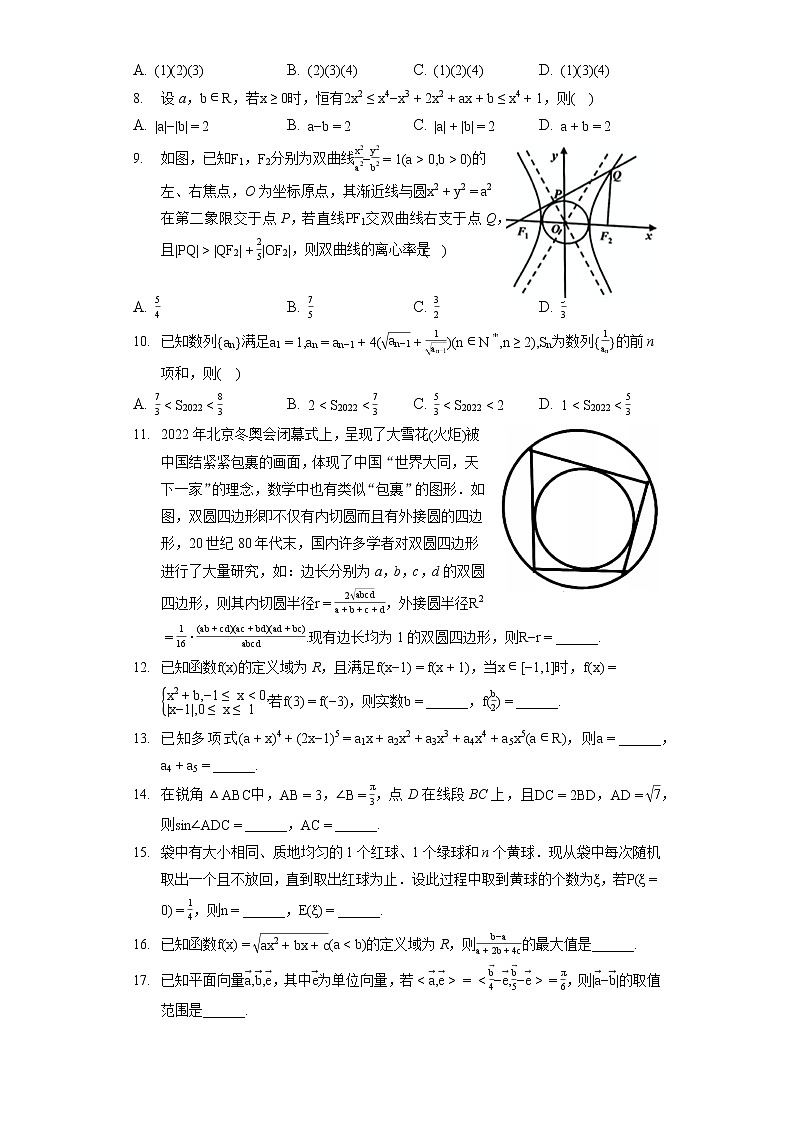 A. (1)(2)(3) B. (2)(3)(4) C. (1)(2)(4) D. (1)(3)(4)
8. 设 a，b∈R，若x ≥ 0时，恒有2x² ≤ x⁴−x³ + 2x² + ax + b ≤ x⁴ + 1，则( )
A. |a|−|b| = 2 B. a−b = 2 C. |a| + |b| = 2 D. a + b = 2
9. 如图，已知F₁，F₂分别为双曲线x²/a²−y²/b² = 1(a > 0,b > 0)的
左、右焦点，O 为坐标原点，其渐近线与圆x² + y² = a²
在第二象限交于点 P，若直线PF₁交双曲线右支于点 Q，
且|PQ| > |QF₂| + 2/5|OF₂|，则双曲线的离心率是( )
y
P
Q
F₁
O
F₂
x
A. 5/4 B. 7/5 C. 3/2 D. 3
10. 已知数列{aₙ}满足a₁ = 1,aₙ = aₙ₋₁ + 4(√aₙ₋₁ + 1/√aₙ₋₁)(n∈N*,n ≥ 2),Sₙ为数列{1/aₙ}的前 n
项和，则( )
A. 7/3 < S₂₀₂₂ < 8/3 B. 2 < S₂₀₂₂ < 7/3 C. 5/3 < S₂₀₂₂ < 2 D. 1 < S₂₀₂₂ < 5/3
11. 2022 年北京冬奥会闭幕式上，呈现了大雪花(火炬)被
中国结紧紧包裹的画面，体现了中国“世界大同，天
下一家”的理念，数学中也有类似“包裹”的图形．如
图，双圆四边形即不仅有内切圆而且有外接圆的四边
形，20世纪 80年代末，国内许多学者对双圆四边形
进行了大量研究，如：边长分别为 a，b，c，d 的双圆
四边形，则其内切圆半径r = 2√abcd/(a + b + c + d)，外接圆半径R²
= 1/16 · (ab + cd)(ac + bd)(ad + bc)/abcd.现有边长均为 1 的双圆四边形，则R−r = ______.
12. 已知函数f(x)的定义域为 R，且满足f(x−1) = f(x + 1)，当x∈[−1,1]时，f(x) =
{x² + b,−1 ≤ x < 0
|x−1|,0 ≤ x ≤ 1 .若f(3) = f(−3)，则实数b = ______，f(b/2) = ______.
13. 已知多项式(a + x)⁴ + (2x−1)⁵ = a₁x + a₂x² + a₃x³ + a₄x⁴ + a₅x⁵(a∈R)，则a = ______，
a₄ + a₅ = ______.
14. 在锐角 △ABC中，AB = 3，∠B = π/3，点 D 在线段 BC 上，且DC = 2BD，AD = √7，
则sin∠ADC = ______，AC = ______.
15. 袋中有大小相同、质地均匀的 1 个红球、1 个绿球和 n 个黄球．现从袋中每次随机
取出一个且不放回，直到取出红球为止．设此过程中取到黄球的个数为ξ，若P(ξ =
0) = 1/4，则n = ______，E(ξ) = ______.
16. 已知函数f(x) = √ax² + bx + c(a < b)的定义域为 R，则(b−a)/(a + 2b + 4c)的最大值是______.
17. 已知平面向量a⃗,b⃗,e⃗，其中e⃗为单位向量，若 < a⃗,e⃗ > = < b⃗/4−e⃗,b⃗/5−e⃗ > = π/6，则|a⃗−b⃗|的取值
范围是______.